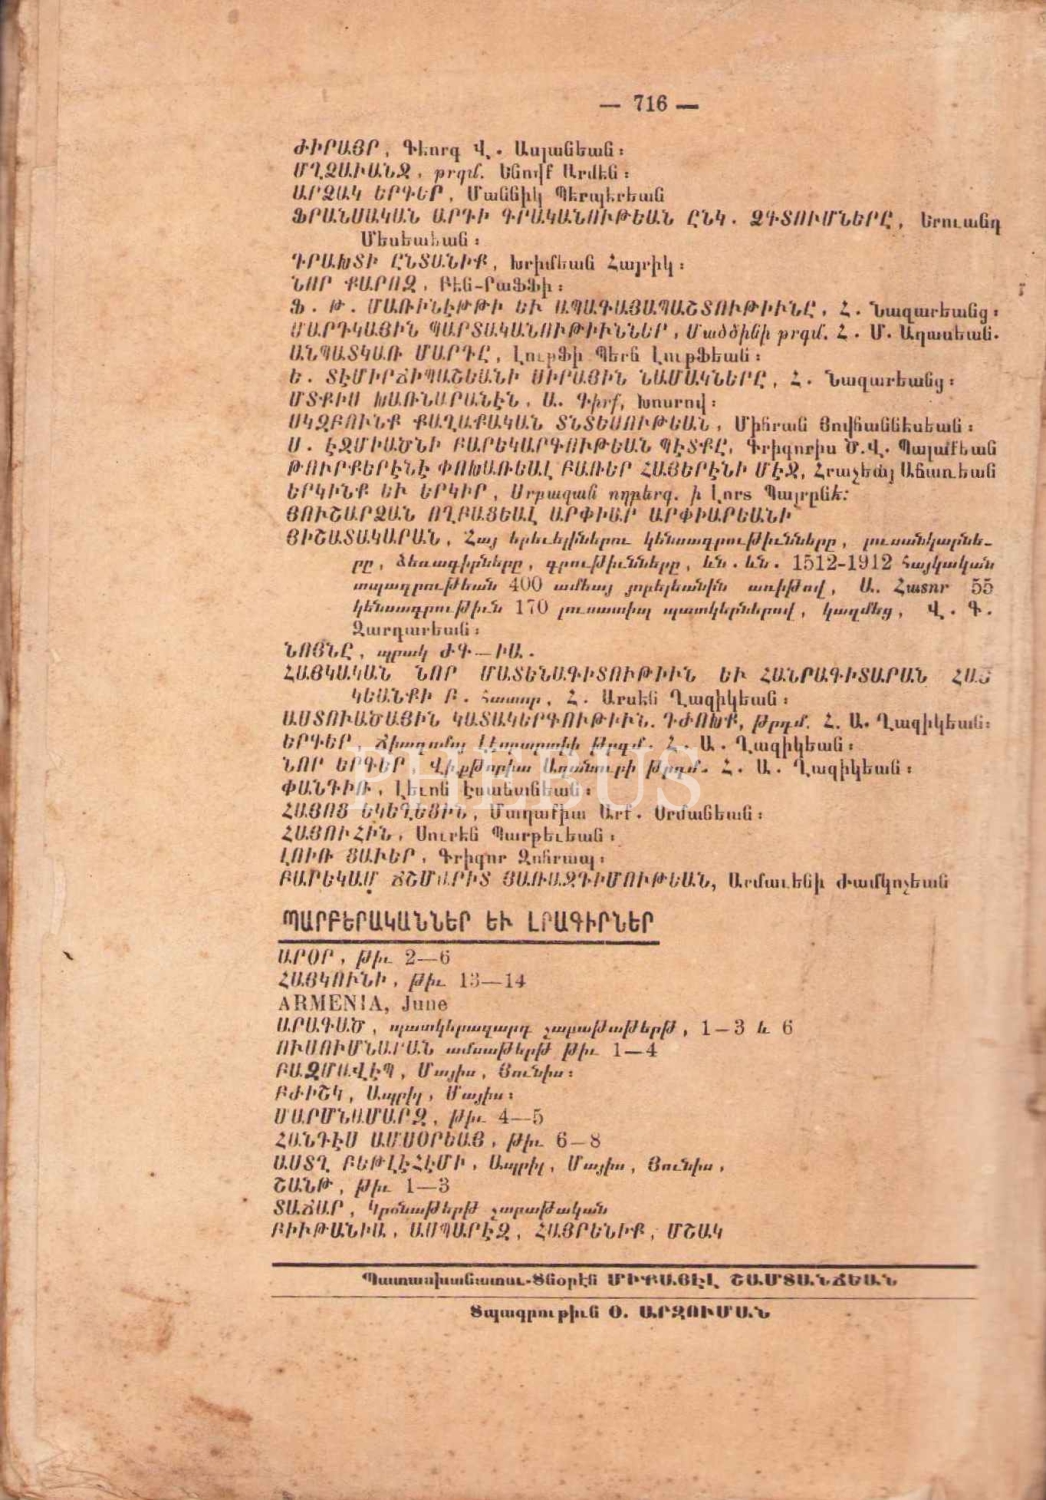 — 716 —
ԺԻՐԱՅՐ, Գէորգ Վ. Ասլանեան:
ՄՂՁԱՒԱՆՋ, թրգմ. Ենովք Արմէն:
ԱՐՁԱԿ ԵՐԳԵՐ, Մաննիկ Պէրպէրեան
ՖՐԱՆՍԱԿԱՆ ԱՐԴԻ ԳՐԱԿԱՆՈՒԹԵԱՆ ԸՆԿ. ՁԳՏՈՒՄՆԵՐԸ, Երուանդ
Մեսեաեան:
ԴՐԱԽՏԻ ԸՆՏԱՆԻՔ, Խրիմեան Հայրիկ:
ՆՈՐ ՔԱՐՈԶ, Բէն-Րաֆֆի:
Ֆ. Թ. ՄԱՌԻՆԷԹԹԻ ԵՒ ԱՊԱԳԱՅԱՊԱՇՏՈՒԹԻՒՆԸ, Հ. Նազարեանց:
ՄԱՐԴԿԱՅԻՆ ՊԱՐՏԱԿԱՆՈՒԹԻՒՆՆԵՐ, Մածծինի թրգմ. Հ. Մ. Աղասեան.
ԱՆՊԱՏԿԱՌ ՄԱՐԴԸ, Լութֆի Պերն Լութֆեան:
Ե. ՏԷՄԻՐՃԻՊԱՇԵԱՆԻ ՍԻՐԱՅԻՆ ՆԱՄԱԿՆԵՐԸ, Հ. Նազարեանց:
ՄՏՔԻՍ ԽԱՌՆԱՐԱՆԷՆ, Ա. Գիրք, Խոսրով:
ՍԿԶԲՈՒՆՔ ՔԱՂԱՔԱԿԱՆ ՏՆՏԵՍՈՒԹԵԱՆ, Միհրան Յովհաննէսեան:
Ս. ԷՋՄԻԱԾՆԻ ԲԱՐԵԿԱՐԳՈՒԹԵԱՆ ՊԷՏՔԸ, Գրիգորիս Ծ.Վ. Պալաքեան
ԹՈՒՐՔԵՐԷՆԷ ՓՈԽԱՌԵԱԼ ԲԱՌԵՐ ՀԱՅԵՐԷՆԻ ՄԷՋ, Հրաչեայ Աճառեան
ԵՐԿԻՆՔ ԵՒ ԵՐԿԻՐ, Սրբազան ողբերգ. ի Լորտ Պայրընէ:
ՅՈՒՇԱՐՁԱՆ ՈՂԲԱՑԵԱԼ ԱՐՓԻԱՐ ԱՐՓԻԱՐԵԱՆԻ
ՅԻՇԱՏԱԿԱՐԱՆ, Հայ երեւելիներու կենսագրութիւնները, լուսանկարնե-
րը, ձեռագիրները, գրութիւնները, եւ. եւ. 1512-1912 հայկական
տպագրութեան 400 ամեայ յոբելեանին առիթով, Ա. Հատոր 55
կենսագրութիւն 170 լուսատիպ պատկերներով, կազմեց, Վ. Գ.
Զարդարեան:
ՆՈՅՆԸ, պրակ ԺԳ—ԻԱ.
ՀԱՅԿԱԿԱՆ ՆՈՐ ՄԱՏԵՆԱԳԻՏՈՒԹԻՒՆ ԵՒ ՀԱՆՐԱԳԻՏԱՐԱՆ ՀԱՅ
ԿԵԱՆՔԻ Բ. հատոր, Հ. Արսէն Ղազիկեան:
ԱՍՏՈՒԱԾԱՅԻՆ ԿԱՏԱԿԵՐԳՈՒԹԻՒՆ. ԴԺՈԽՔ, Թրգմ. Հ. Ա. Ղազիկեան:
ԵՐԳԵՐ, Ճիաքոմոյ Լէոբարտիի Թրգմ. Հ. Ա. Ղազիկեան:
ՆՈՐ ԵՐԳԵՐ, Վիքթորիա Աղանուրի Թրգմ. Հ. Ա. Ղազիկեան:
ՓԱՆԴԻՌ, Լեւոն Էսաեանեան:
ՀԱՅՈՑ ԵԿԵՂԵՑԻՆ, Մաղաքիա Արք. Օրմանեան:
ՀԱՅՈՒՀԻՆ, Սուրէն Պարթեւեան:
ԼՈՒՌ ՑԱՒԵՐ, Գրիգոր Զոհրապ:
ԲԱՐԵԿԱՄ ՃՇՄԱՐԻՏ ՅԱՌԱՋԴԻՄՈՒԹԵԱՆ, Արմաւենի Ժամկոչեան
ՊԱՐԲԵՐԱԿԱՆՆԵՐ ԵՒ ԼՐԱԳԻՐՆԵՐ
ԱՐՕՐ, թիւ 2—6
ՀԱՅԿՈՒՆԻ, թիւ 13—14
ARMENIA, June
ԱՐԱԳԱԾ, պատկերազարդ շաբաթաթերթ, 1—3 և 6
ՈՒՍՈՒՄՆԱՐԱՆ ամսաթերթ թիւ 1—4
ԲԱԶՄԱՎԷՊ, Մայիս, Յունիս:
ԲԺԻՇԿ, Ապրիլ, Մայիս:
ՄԱՐՄՆԱՄԱՐԶ, թիւ 4—5
ՀԱՆԴԷՍ ԱՄՍՕՐԵԱՅ, թիւ 6—8
ԱՍՏՂ ԲԵԹԼԷՀԷՄԻ, Ապրիլ, Մայիս, Յունիս,
ՇԱՆԹ, թիւ 1—3
ՏԱՃԱՐ, կրօնաթերթ շաբաթական
ԲԻՒԹԱՆԻԱ, ԱՍՊԱՐԷԶ, ՀԱՅՐԵՆԻՔ, ՄՇԱԿ
Պատասխանատու-Տնօրէն ՄԻՔԱՅԷԼ ՇԱՄՏԱՆՃԵԱՆ
Տպագրութիւն Օ. ԱՐԶՈՒՄԱՆ
PHEBUS